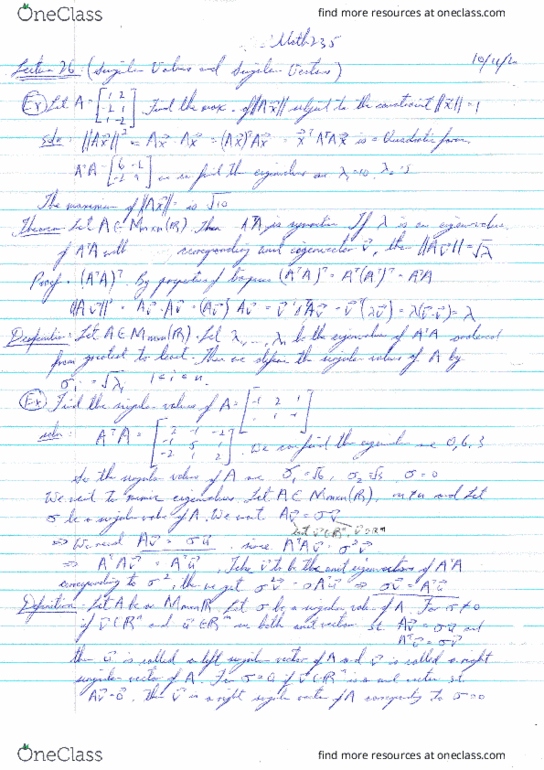 find more resources at oneclass.com
OneClass
Math 235
Lecture 26 (Singular Values and Singular Vectors)
Ex Let A = [1 2; 2 1; 1 -2]. Find the max. of ||Ax⃗|| subject to the constraint ||x⃗|| = 1
soln: ||Ax⃗||² = Ax⃗ · Ax⃗ = (Ax⃗)ᵀAx⃗ = x⃗ᵀAᵀAx⃗ is a Quadratic form.
AᵀA = [6 -2; -2 9] we find the eigenvalues are λ₁=10, λ₂=5
The maximum of ||Ax⃗|| is √10
Theorem Let A ∈ Mmxn(R). Then AᵀA is symmetric. If λ is an eigenvalue
of AᵀA with corresponding unit eigenvector v⃗, then ||Av⃗|| = √λ
Proof: (AᵀA)ᵀ. By properties of transpose (AᵀA)ᵀ = Aᵀ(Aᵀ)ᵀ = AᵀA
||Av⃗||² = Av⃗ · Av⃗ = (Av⃗)ᵀ Av⃗ = v⃗ᵀAᵀAv⃗ = v⃗ᵀ(λv⃗) = λ(v⃗·v⃗) = λ
Definition: Let A ∈ Mmxn(R). Let λ₁, ..., λn be the eigenvalues of AᵀA ordered
from greatest to least. Then we define the singular values of A by
σi = √λi 1 ≤ i ≤ n.
Ex Find the singular values of A =
soln: AᵀA = [2 -1 -2; -1 5 1; -2 1 2]. We can find the eigenvalues are 0, 6, 3
So the singular values of A are σ₁=√6, σ₂=√3, σ=0
We want to mimic eigenvalues. Let A ∈ Mmxn(R), m≠n and let
σ be a singular value of A. We want Av⃗ = σv⃗
⇒ We need Av⃗ = σu⃗. since AᵀAv⃗ = σ²v⃗
⇒ AᵀAv⃗ = σAᵀu⃗, Take v⃗ to be the unit eigenvectors of AᵀA
corresponding to σ², then we get σ²v⃗ = σAᵀu⃗ ⇒ σv⃗ = Aᵀu⃗
Definition: Let A be an MmxnR. Let σ be a singular value of A. For σ≠0
if v⃗ ∈ Rⁿ and u⃗ ∈ Rᵐ are both unit vectors s.t. Av⃗ = σu⃗ and
Aᵀu⃗ = σv⃗
then u⃗ is called a left singular vector of A and v⃗ is called a right
singular vector of A. For σ=0 if v⃗ ∈ Rⁿ is a unit vector s.t.
Av⃗ = 0⃗. Then v⃗ is a right singular vector of A corresponding to σ=0
OneClass
find more resources at oneclass.com